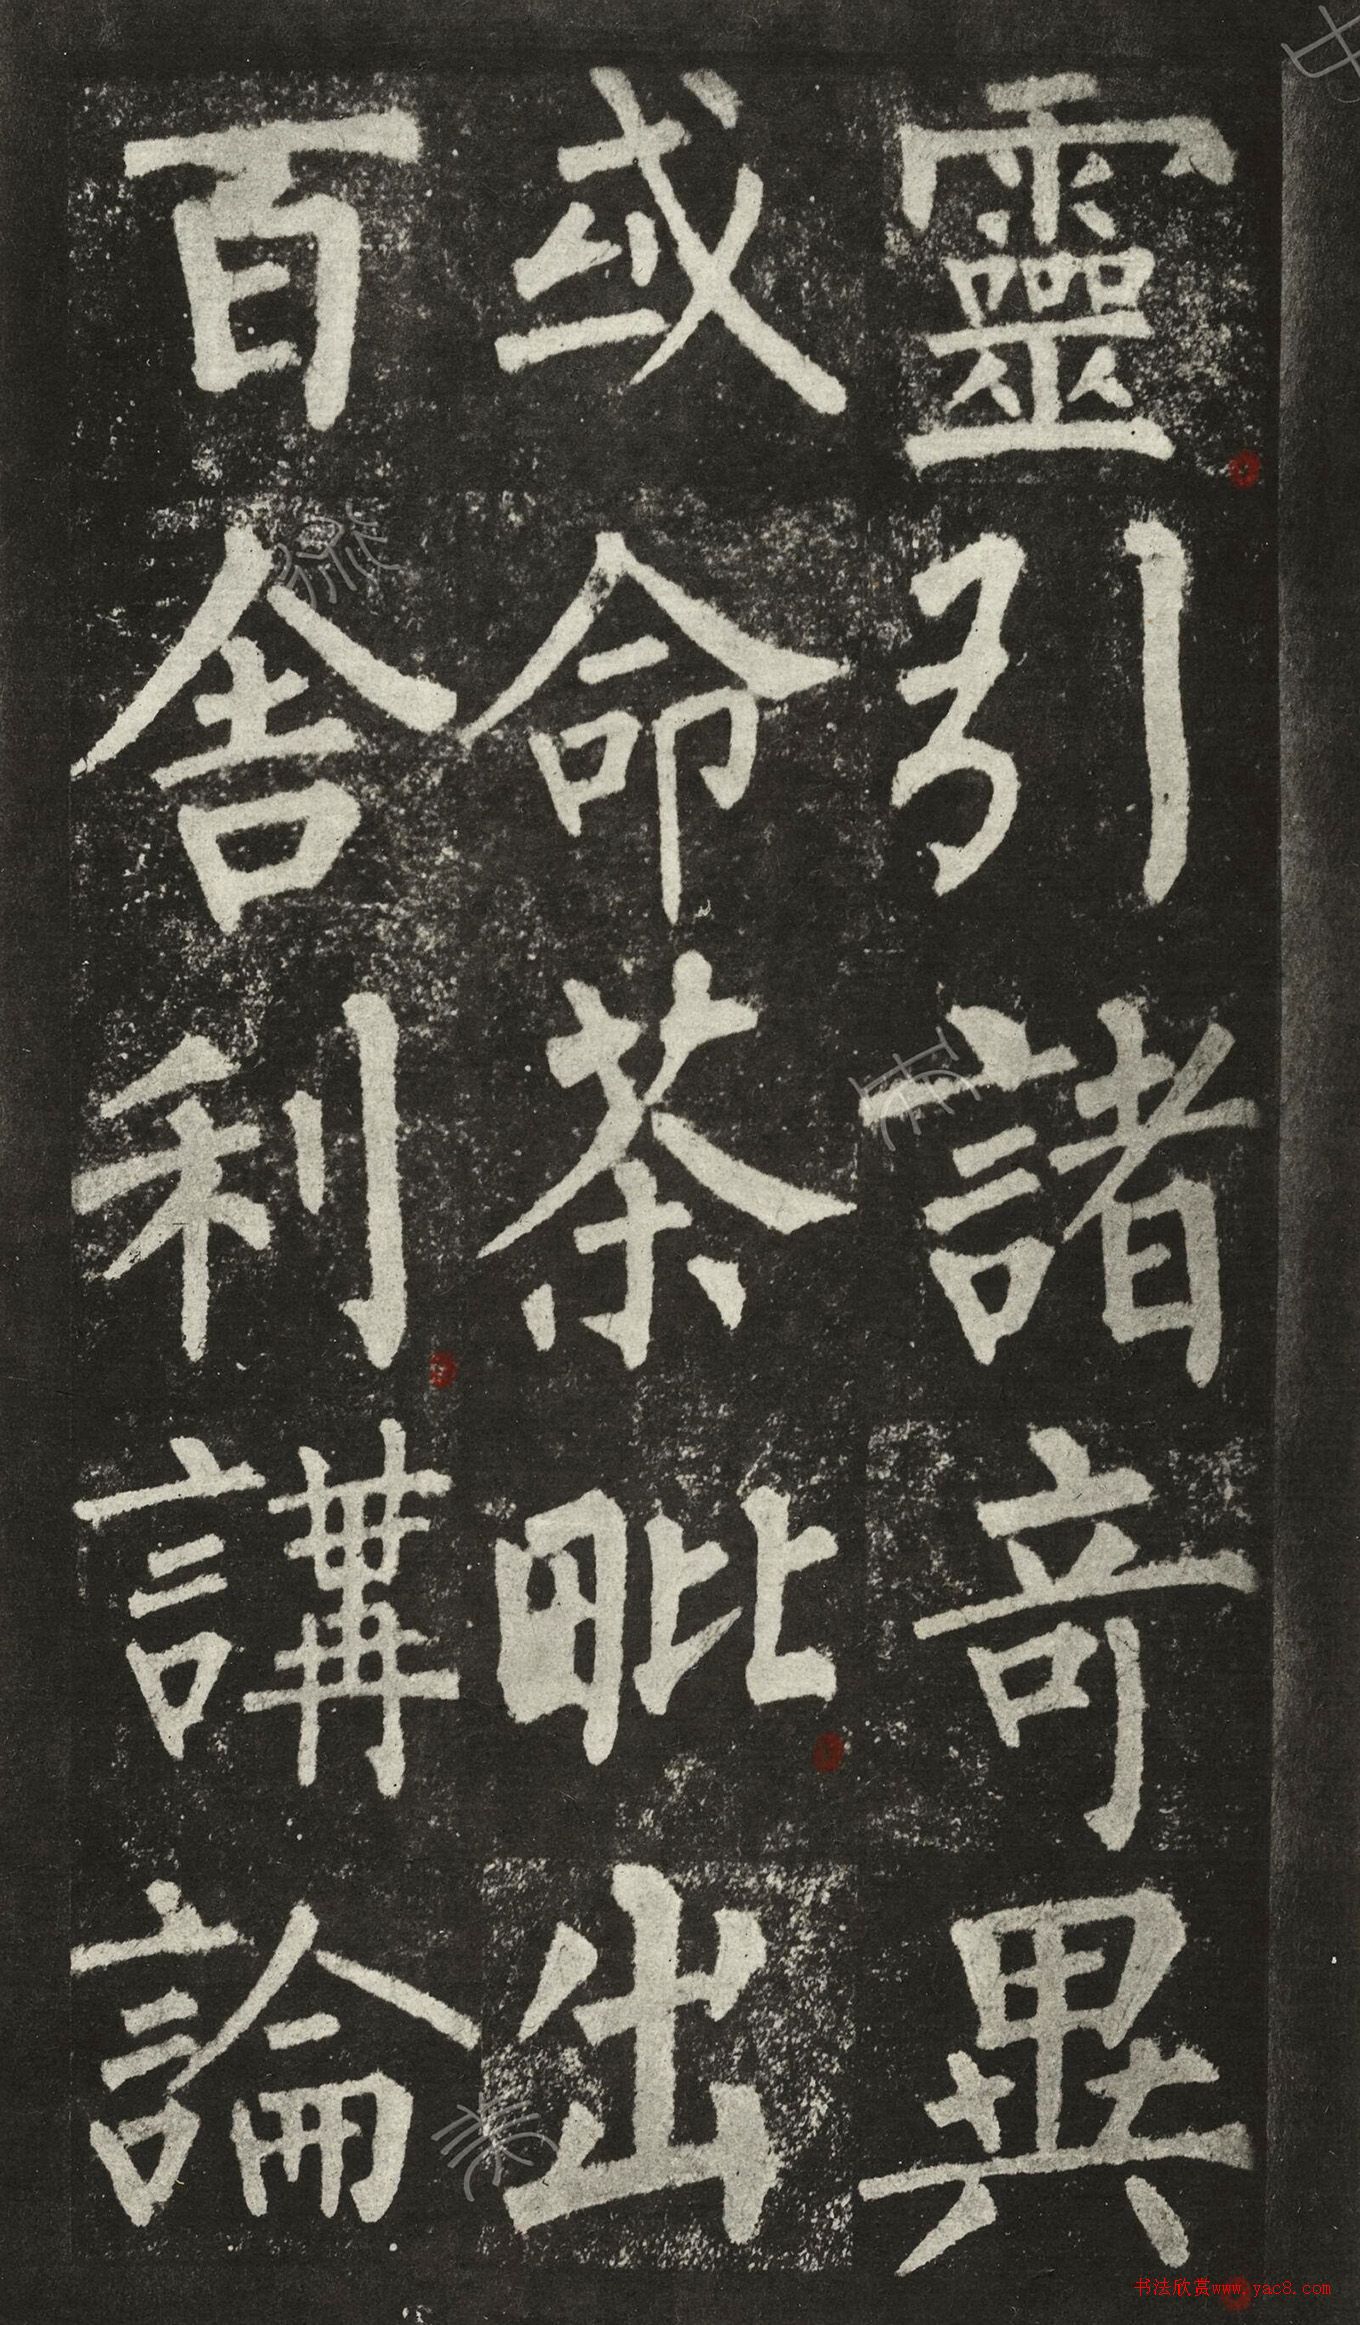 靈引諸竒異
或命茶毗出
百舍利講論
书法欣赏www.yac8.com